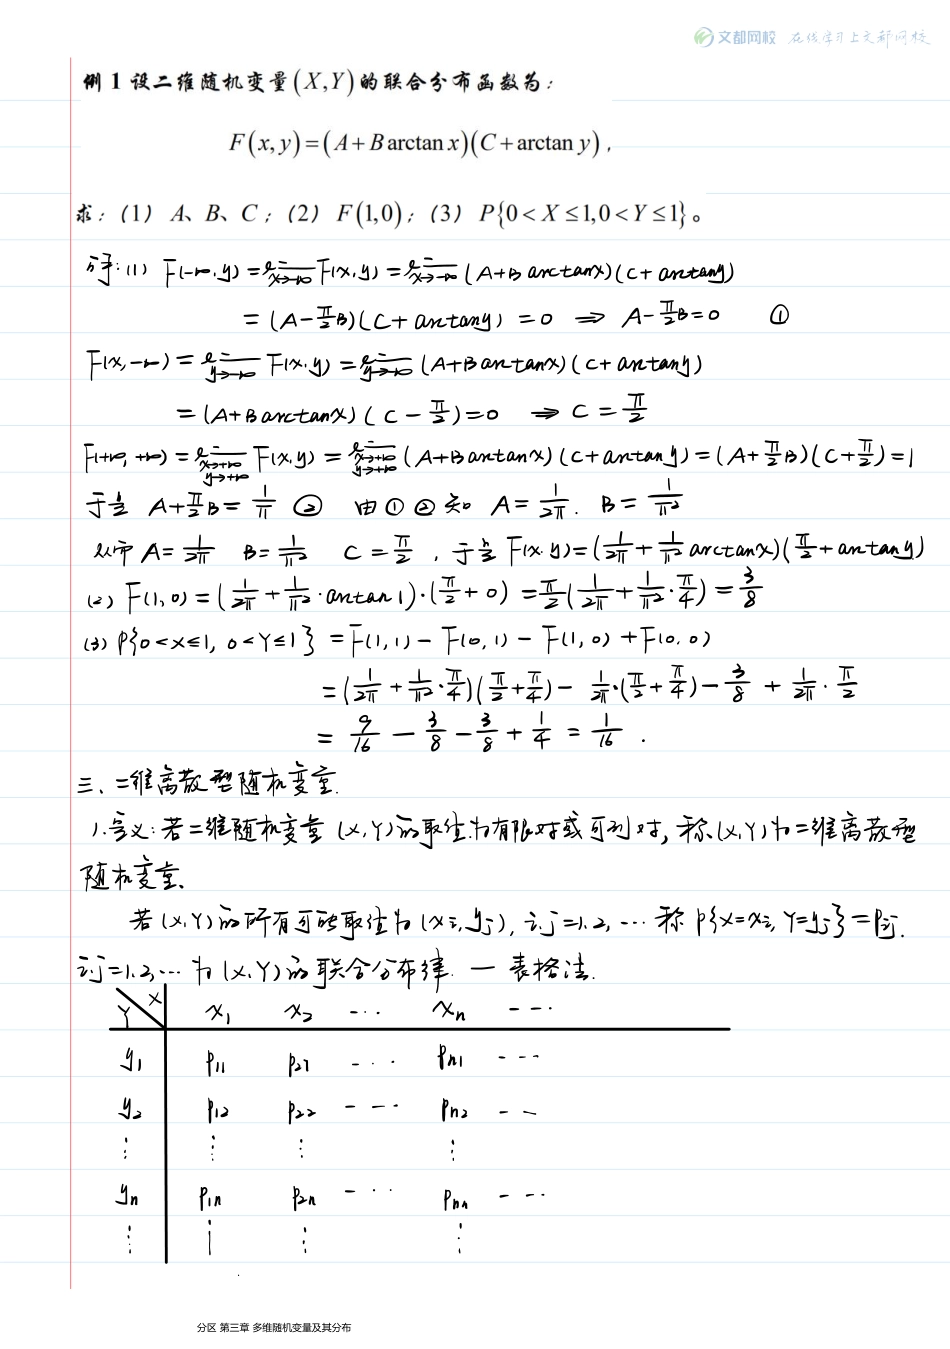 文都网校 在线学习上文都网校
例 1 设二维随机变量(X,Y)的联合分布函数为：
F(x,y)=(A+B arctan x)(C+arctan y)，
求：(1) A、B、C；(2) F(1,0)；(3) P{0<X≤1,0<Y≤1}。
解:(1) F(-∞,y)=lim_{x→-∞}F(x,y)=lim_{x→-∞}(A+B arctanx)(C+arctany)
=(A-π/2 B)(C+arctany)=0 ⇒ A-π/2 B=0 ①
F(x,-∞)=lim_{y→-∞}F(x,y)=lim_{y→-∞}(A+Barctanx)(C+arctany)
=(A+Barctanx)(C-π/2)=0 ⇒ C=π/2
F(+∞,+∞)=lim_{x→+∞ y→+∞}F(x,y)=lim_{x→+∞ y→+∞}(A+Barctanx)(C+arctany)=(A+π/2 B)(C+π/2)=1
于是 A+π/2 B=1/π ② 由①②知 A=1/2π. B=1/π²
从而 A=1/2π B=1/π² C=π/2, 于是F(x,y)=(1/2π+1/π² arctanx)(π/2+arctany)
(2) F(1,0)=(1/2π+1/π²·arctan1)·(π/2+0)=π/2(1/2π+1/π²·π/4)=3/8
(3) P{0<X≤1, 0<Y≤1}=F(1,1)-F(0,1)-F(1,0)+F(0,0)
=(1/2π+1/π²·π/4)(π/2+π/4)-1/2π·(π/2+π/4)-3/8+1/2π·π/2
=9/16-3/8-3/8+1/4=1/16.
三、二维离散型随机变量.
1.定义:若二维随机变量(X,Y)的取值为有限对或可列对,称(X,Y)为二维离散型
随机变量.
若(X,Y)的所有可能取值为(xi,yj),i,j=1,2,…称P{X=xi,Y=yj}=Pij.
i,j=1,2,…为(X,Y)的联合分布律.—表格法.
Y X x1 x2 … xn …
y1 P11 P21 … Pn1 …
y2 P12 P22 … Pn2 …
⋮ ⋮ ⋮ ⋮
yn P1n P2n … Pnn …
⋮ ⋮ ⋮ ⋮
分区 第三章 多维随机变量及其分布